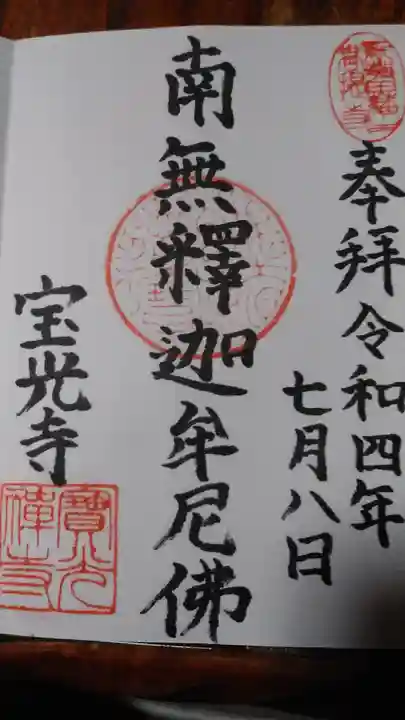 奉拜令和四年
七月八日
南無釋迦牟尼佛
宝光寺
寶光
禅寺